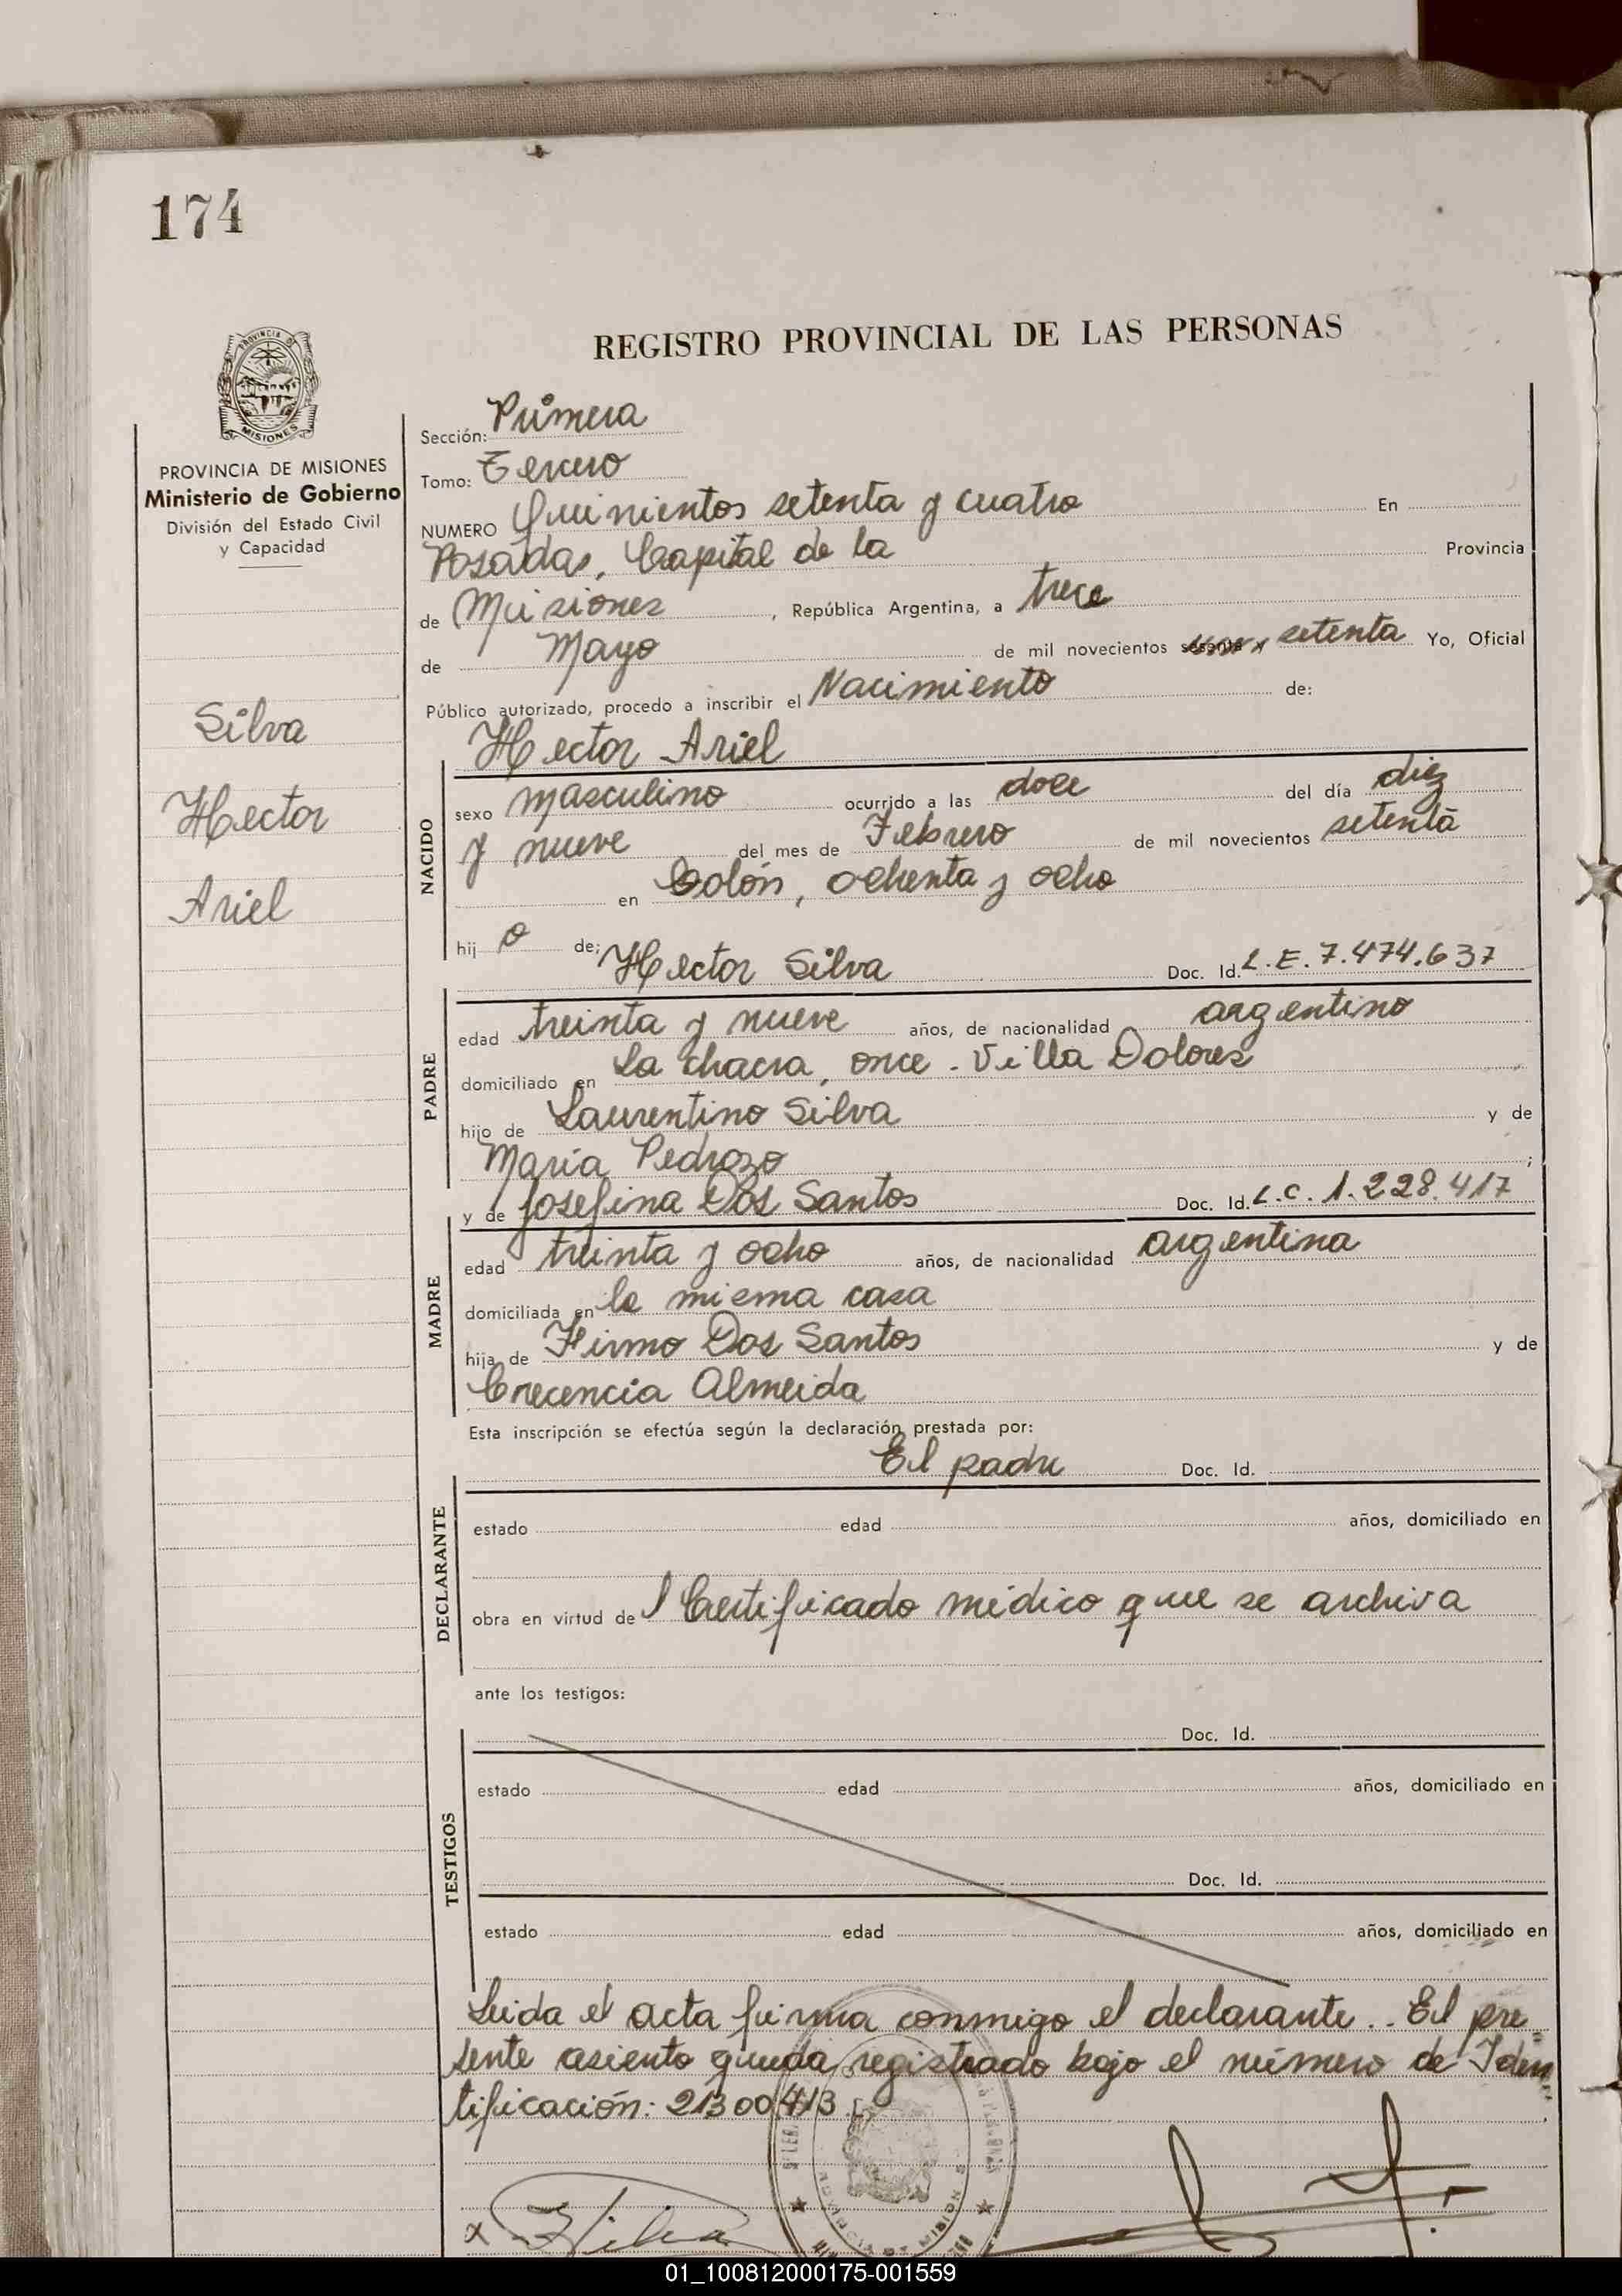 174
REGISTRO PROVINCIAL DE LAS PERSONAS
PROVINCIA DE MISIONES
Ministerio de Gobierno
División del Estado Civil
y Capacidad
Silva
Hector
Ariel
Sección: Primera
Tomo: Tercero
NUMERO Quinientos setenta y cuatro En
Posadas, Capital de la Provincia
de Misiones, República Argentina, a trece
de Mayo de mil novecientos setenta Yo, Oficial
Público autorizado, procedo a inscribir el Nacimiento de:
Hector Ariel
NACIDO
sexo masculino ocurrido a las doce del día diez
y nueve del mes de Febrero de mil novecientos setenta
en Colón, ochenta y ocho
hijo de; Hector Silva Doc. Id. L.E. 7.474.637
PADRE
edad treinta y nueve años, de nacionalidad argentino
domiciliado en La chacra, once - Villa Dolores
hijo de Laurentino Silva y de
María Pedrozo ;
y de Josefina Dos Santos Doc. Id. L.C. 1.228.417
MADRE
edad treinta y ocho años, de nacionalidad argentina
domiciliada en la misma casa
hija de Firmo Dos Santos y de
Crecencia Almeida
Esta inscripción se efectúa según la declaración prestada por:
El padre Doc. Id.
DECLARANTE
estado edad años, domiciliado en
obra en virtud de l Certificado médico que se archiva
ante los testigos:
Doc. Id.
TESTIGOS
estado edad años, domiciliado en
Doc. Id.
estado edad años, domiciliado en
Leida el acta firma conmigo el declarante.. El pre=
sente asiento queda registrado bajo el número de Iden
tificación: 21300413
x HSilva
01_100812000175-001559